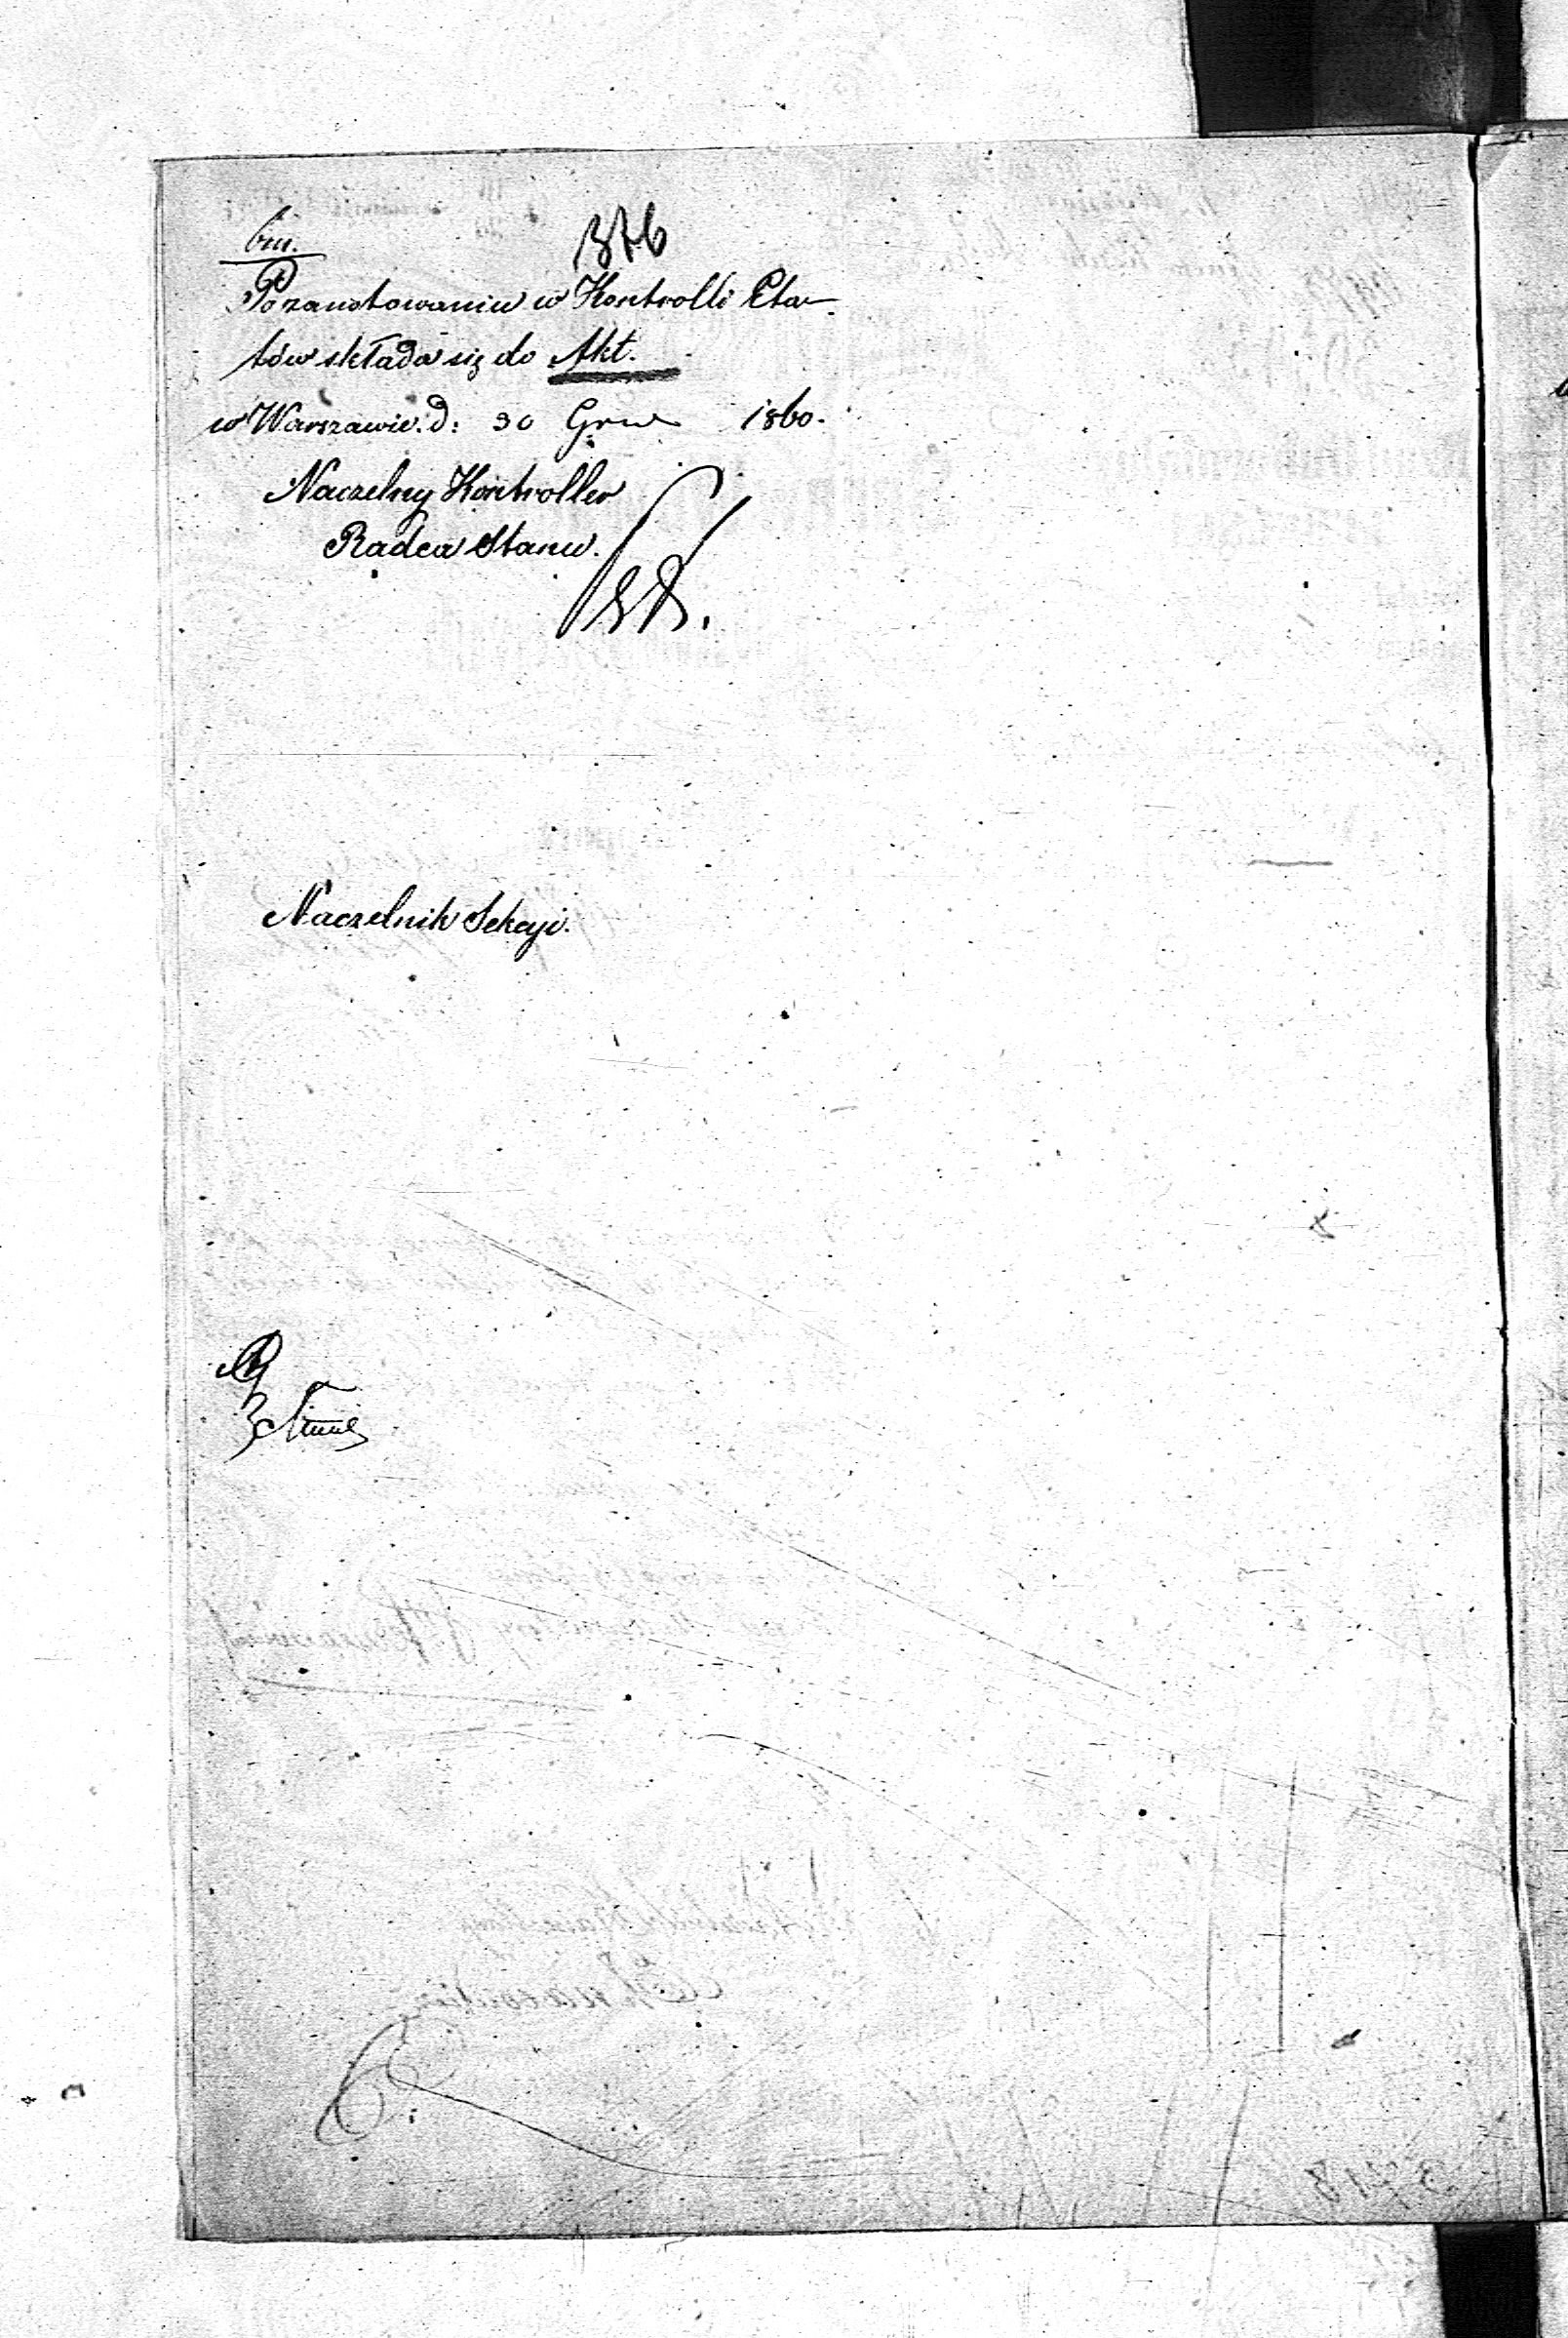 bm.
Po zanotowaniu w Kontrolli Eta-
tów składa się do Akt.
w Warszawie d: 30 Gru 1860.
Naczelny Kontroller
Radca Stanu.
Naczelnik Sekcyi.